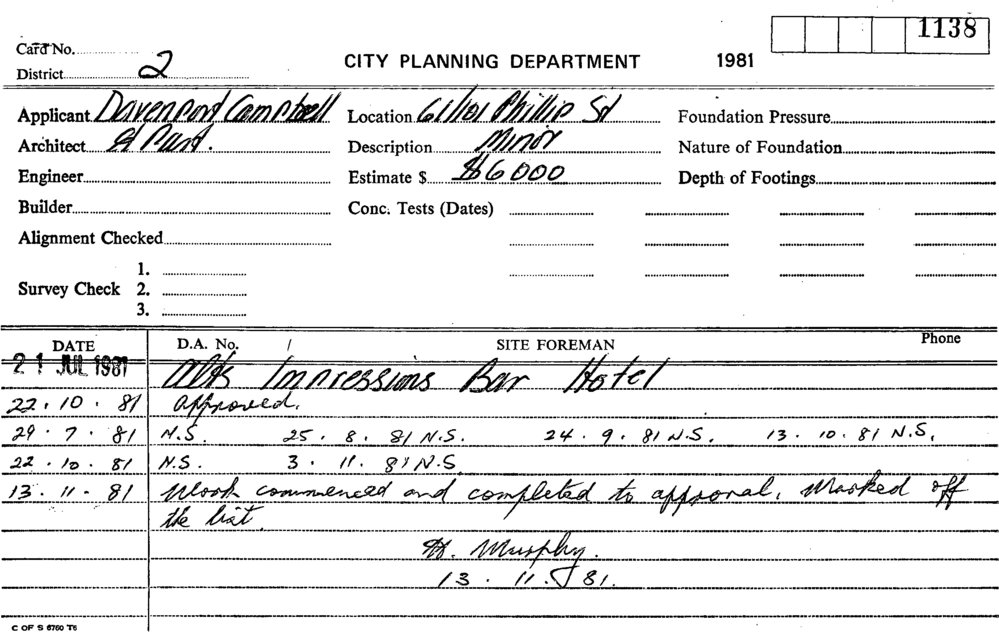 1138
Card No.
District 2 CITY PLANNING DEPARTMENT 1981
Applicant Davenport Campbell Location 61/101 Phillip St Foundation Pressure
Architect & Part. Description Minor Nature of Foundation
Engineer Estimate $ $6000 Depth of Footings
Builder Conc. Tests (Dates)
Alignment Checked
1.
Survey Check 2.
3.
DATE D.A. No. / SITE FOREMAN Phone
21 JUL 1981 Alts Impressions Bar Hotel
22.10.81 Approved.
29.7.81 N.S. 25.8.81 N.S. 24.9.81 N.S. 13.10.81 N.S.
22.10.81 N.S. 3.11.81 N.S.
13.11.81 Work commenced and completed to approval. Marked off
the list.
H. Murphy.
13.11.81.
C OF S 6760 T6